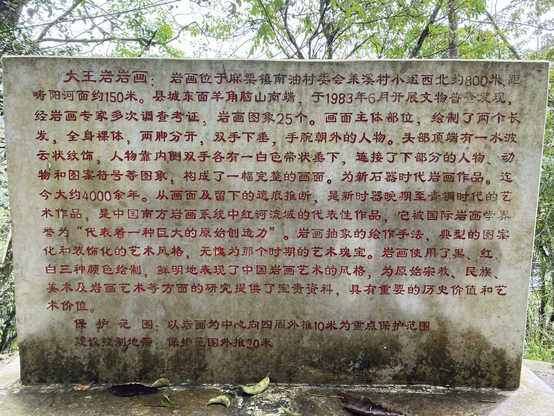 大王岩岩画：岩画位于麻栗镇南油村委会茉溪村小组西北约800米，距
畴阳河面约150米。县城东面羊角脑山南端，于1983年6月开展文物普查发现，
经岩画专家多次调查考证，岩画图象25个。画面主体部位，绘制了两个长
发，全身裸体，两脚分开，双手下垂，手腕朝外的人物。头部顶端有一水波
云状纹饰，人物靠内侧双手各有一白色带状垂下，连接了下部分的人物、动
物和图案符号等图象，构成了一幅完整的画面。为新石器时代岩画作品。迄
今大约4000余年。从画面及留下的遗痕推断，是新时器晚期至青铜时代的艺
术作品，是中国南方岩画系统中红河流域的代表性作品，它被国际岩画学界
誉为“代表着一种巨大的原始创造力”。岩画抽象的绘作手法、典型的图案
化和装饰化的艺术风格，无愧为那个时期的艺术瑰宝。岩画使用了黑、红、
白三种颜色绘制，鲜明地表现了中国岩画艺术的风格，为原始宗教、民族、
美术及岩画艺术等方面的研究提供了宝贵资料，具有重要的历史价值和艺
术价值。
保护范围：以岩画为中心向四周外推10米为重点保护范围
建设控制地带：保护范围外推20米